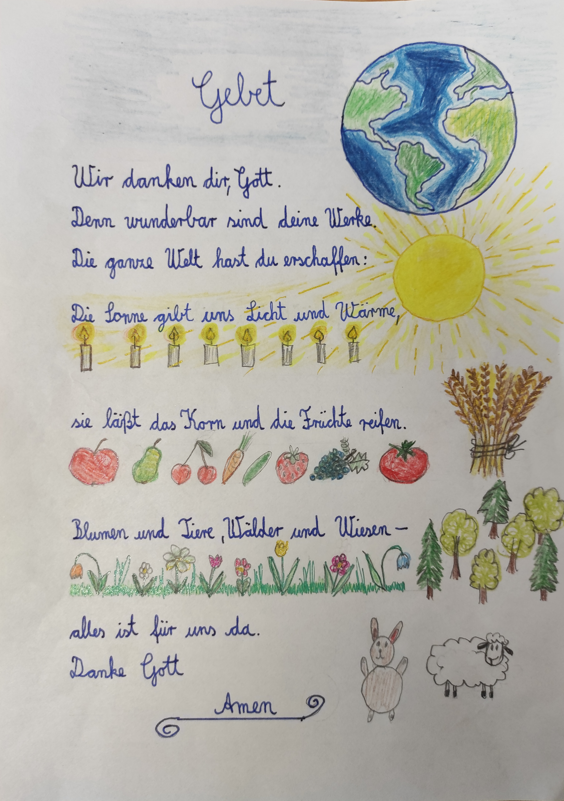 Gebet
Wir danken dir, Gott.
Denn wunderbar sind deine Werke.
Die ganze Welt hast du erschaffen:
Die Sonne gibt uns Licht und Wärme,
sie läßt das Korn und die Früchte reifen.
Blumen und Tiere, Wälder und Wiesen –
alles ist für uns da.
Danke Gott
Amen